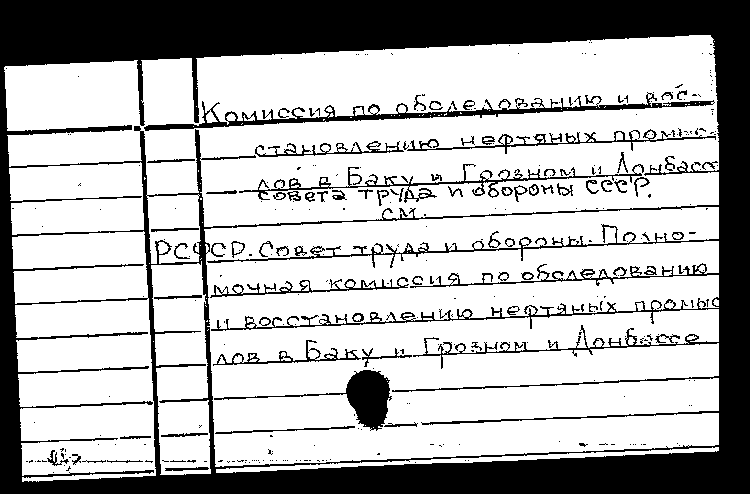 Комиссия по обследованию и вос-
становлению нефтяных промыс-
лов в Баку и Грозном и Донбассе
совета труда и обороны СССР.
см.
РСФСР. Совет труда и обороны. Полно-
мочная комиссия по обследованию
и восстановлению нефтяных промыс
лов в Баку и Грозном и Донбассе